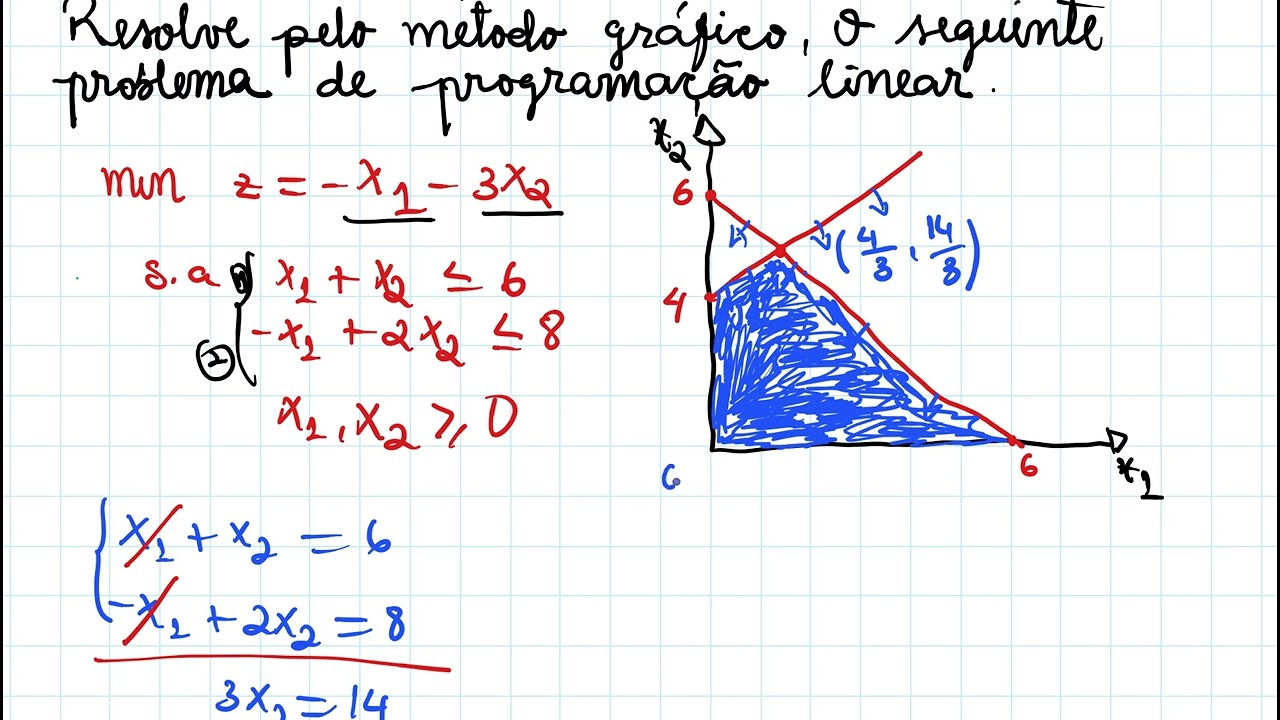 Resolve pelo método gráfico, o seguinte
problema de programação linear.
min z = -x₁ - 3x₂
s.a ① x₁ + x₂ ≤ 6
② -x₁ + 2x₂ ≤ 8
x₁, x₂ ≥ 0
x₂
6
(4/3, 14/3)
4
6
x₁
x₁ + x₂ = 6
-x₁ + 2x₂ = 8
3x₂ = 14